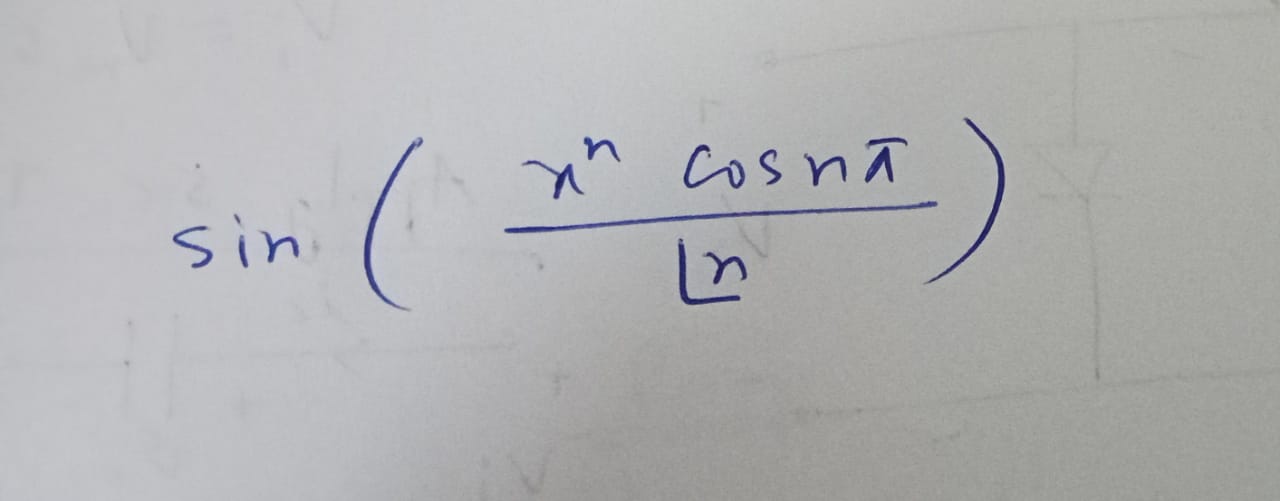 sin ( xⁿ cos nπ / ⌊n )